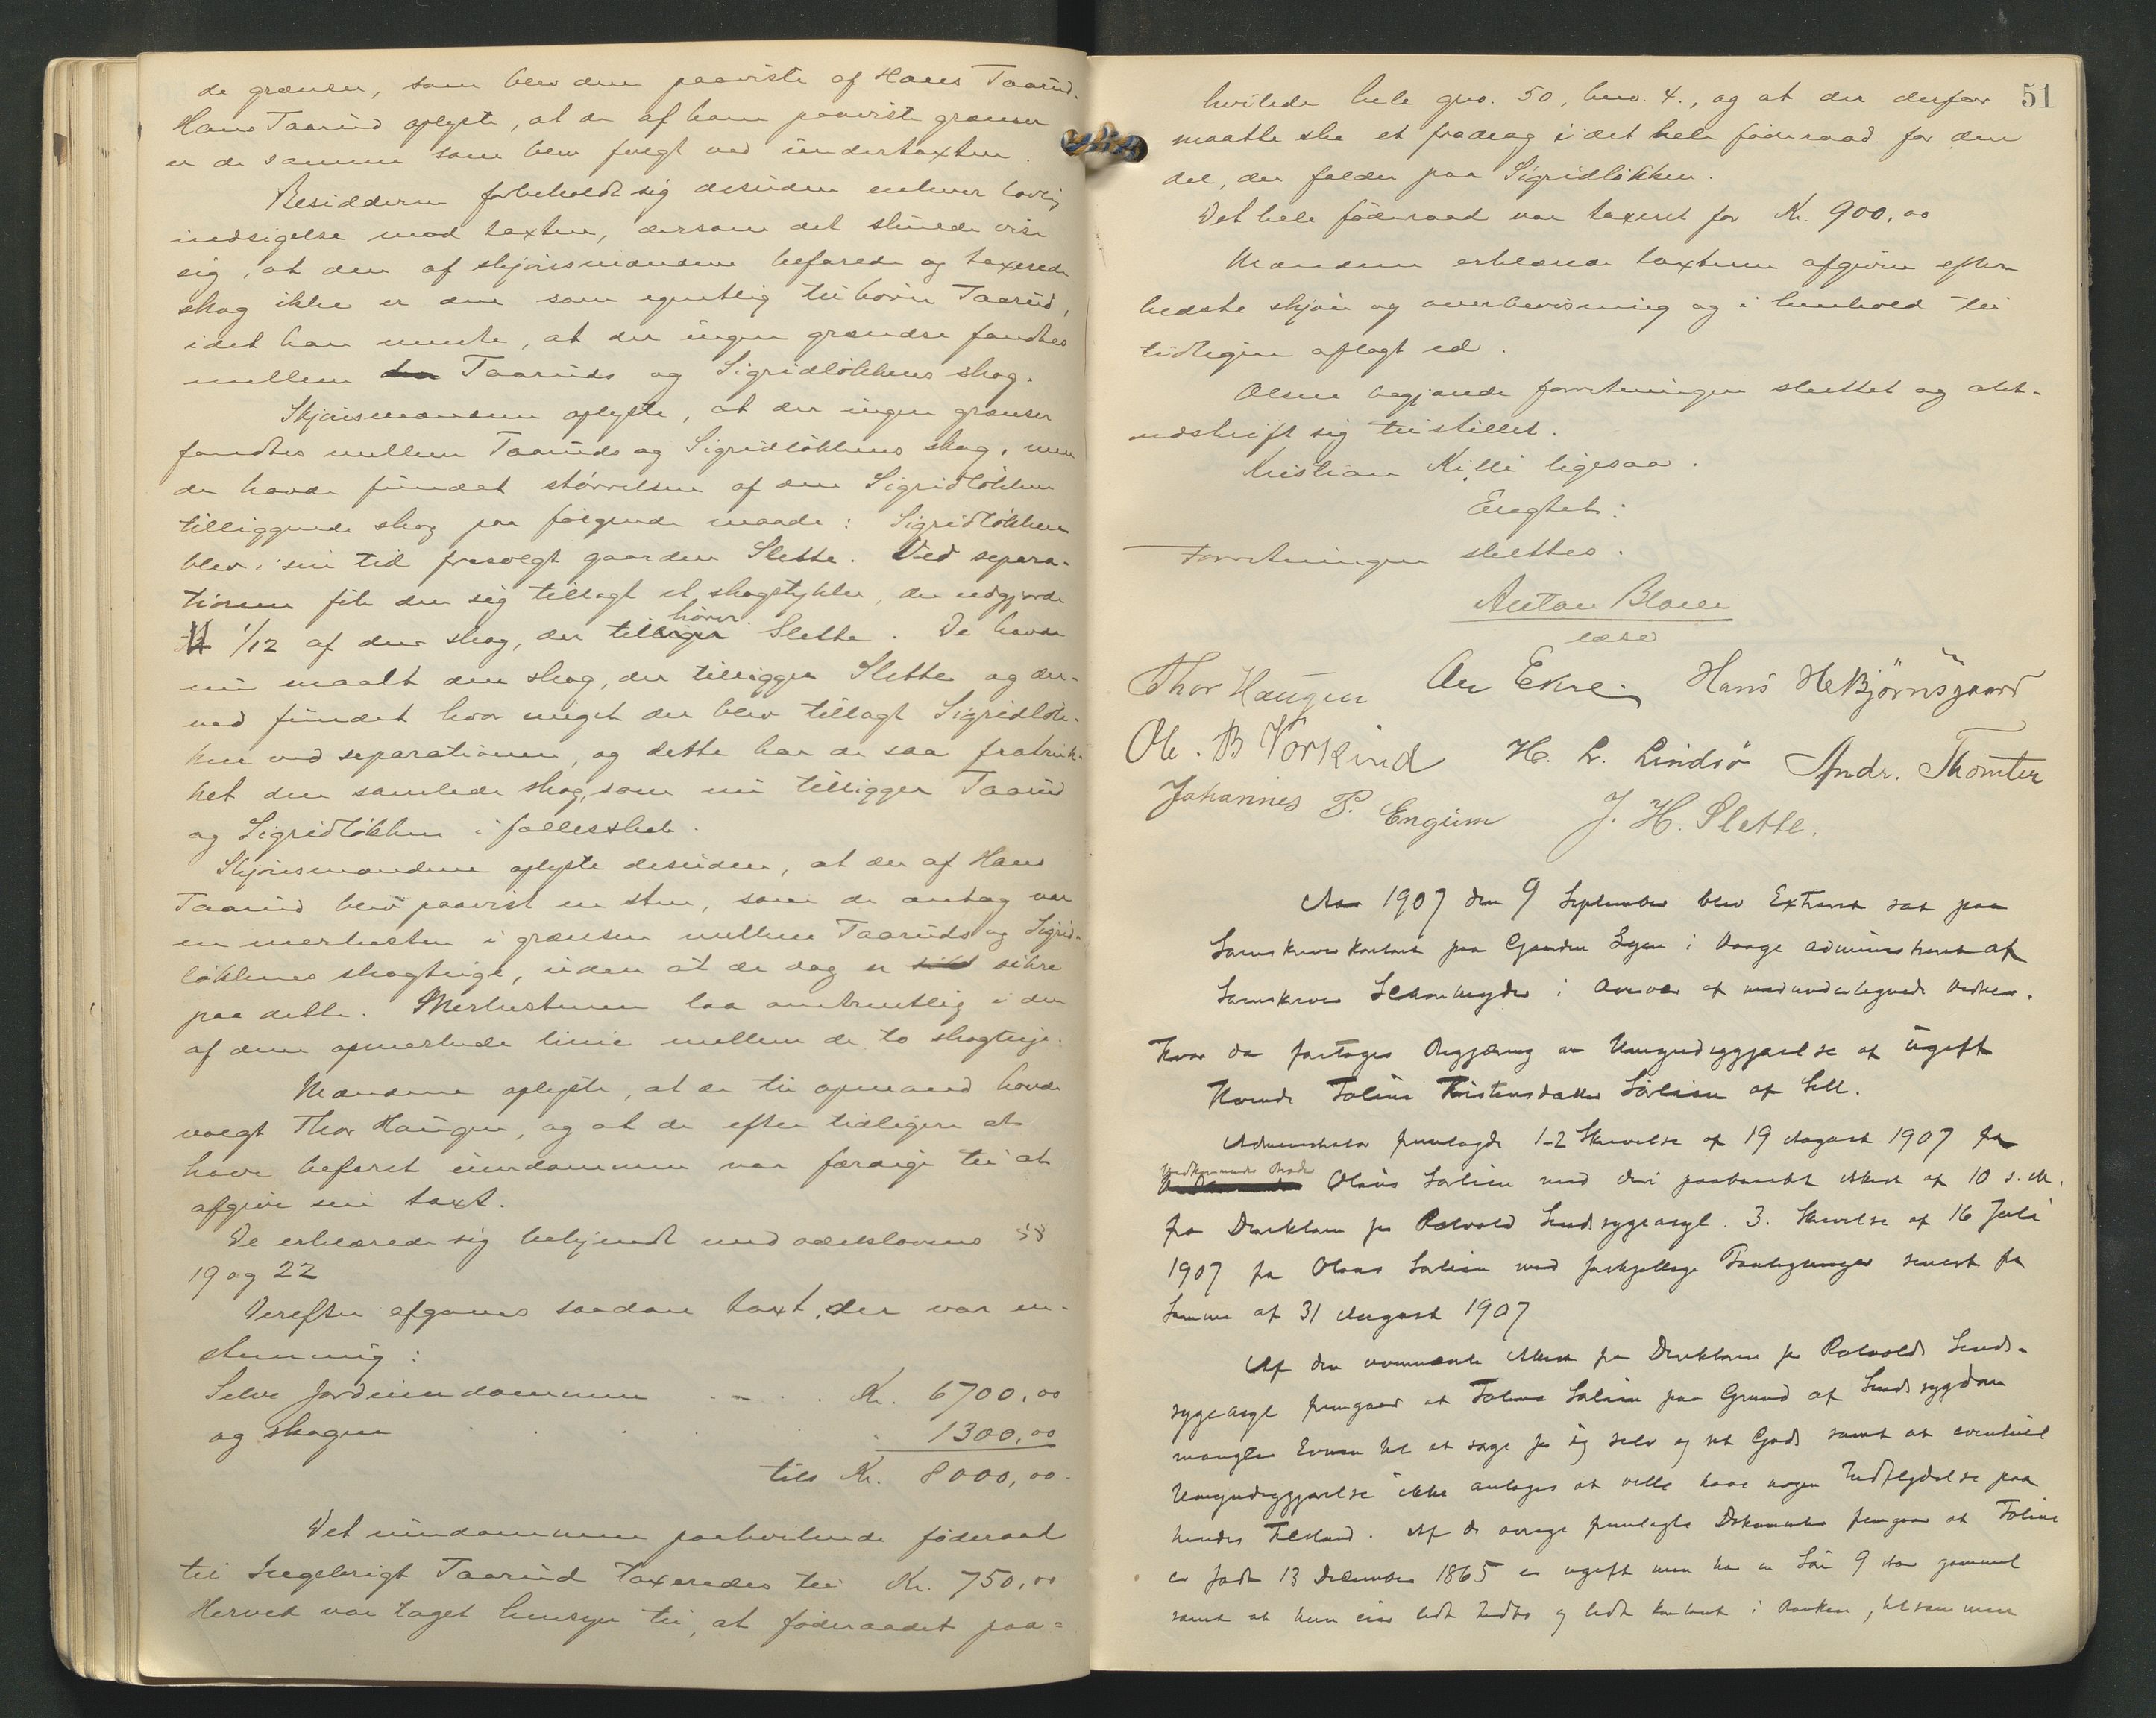 de grænser, som blev dem paaviste af Hans Taarud.
Hans Taarud oplyste, at de af ham paaviste grænser
er de samme som blev fulgt ved undertaxten.
Residderen forbeholdt sig desuden enhver lovlig
indsigelse mod taxten, dersom det skulde vise
sig, at den af skjönsmændene befarede og taxerede
skog ikke er den som egentlig tilhörer Taarud,
idet han mente, at der ingen grændse fandtes
mellem Taaruds og Sigridlökkens skog.
Skjönsmændene oplyste, at der ingen grænser
fandtes mellem Taaruds og Sigridlökkens skog, men
de havde fundet störrelsen af den Sigridlökken
tilliggende skog paa fölgende maade: Sigridlökken
blev i sin tid frasolgt gaarden Slette. Ved separa-
tionen fik den sig tillagt et skogstykke, der udgjorde
1/12 af den skog, der tilhörer Slette. De havde
nu maalt den skog, der tilligger Slette og der-
ved fundet hvor meget der blev tillagt Sigridlök-
ken ved separationen, og dette har de saa fratruk-
ket den samlede skog, som nu tilligger Taarud
og Sigridlökken i fællesskab.
Skjönsmændene oplyste desuden, at der af Hans
Taarud blev paavist en sten, som de antog var
en merkesten i grænsen mellem Taaruds og Sigrid-
lökkens skogteige, uden at de dog er sikre
paa dette. Merkestenen laa omtrentlig i den
af dem opmerkede linie mellem de to skogteige.
Mændene oplyste, at de til opmand havde
valgt Thor Haugen, og at de efter tidligere at
have befaret eiendommen var færdige til at
afgive sin taxt.
De erklærede sig bekjendt med odelslovens §§
19 og 22
Derefter afgaves saadan taxt, der var en-
stemmig:
Selve jordeiendommen . - . . Kr. 6700,00
og skogen . . . . . 1300,00
tils Kr. 8000,00.
Det eiendommen paahvilende föderaad
til Ingebrigt Taarud taxeredes til Kr. 750,00
Herved var taget hensyn til, at föderaadet paa=
51
hvilede hele gno. 50, bno. 4., og at der derfor
maatte ske et fradrag i det hele föderaad for den
del, der falder paa Sigridlökken.
Det hele föderaad var taxeret for Kr. 900,00
Mændene erklærede taxterne afgivne efter
bedste skjön og overbevisning og i henhold til
tidligere aflagt ed.
Olsen begjærede forretningen sluttet og akt-
udskrift sig tilstillet.
Kristian Killi ligesaa.
Eragtet:
Forretningen sluttes.
Anton Blom
edsv
Thor Haugen An Ekre. Hans H Bjørnsgaard
Ole. B Vorkind H. L. Lindsö Andr. Thomter
Johannes P. Engum J. H. Slette.
Aar 1907 den 9 September blev Extraret sat paa
Sorenskriverkontoret paa Gaarden Syse i Vaage administreret af
Sorenskriver i Overvær af medundertegnede Vidner.
Hvor da foretoges Begjæring om Umyndiggjørelse af ugift
Kvinde Toline Kristensdatter Sörlien af Sell.
Administrator fremlagde 1-2 Skrivelse af 19 August 1907 fra
Vedkommendes Broder Olaus Sorlien med deri paaberaabt Attest af 10 s. M.
fra Direktøren for Rotvold Sindssygeasyl. 3. Skrivelse af 16 Juli
1907 fra Olaus Sorlien med forskjellige Paategninger senest fra
Samme af 31 August 1907
Af den ovennævnte Attest fra Direktøren for Rotvolds Sinds-
sygeasyl fremgaar at Toline Sorlien paa Grund af Sindssygdom
mangler Evnen til at sørge for sig selv og sit Gods samt at eventuel
Umyndiggjørelse ikke antages at ville have nogen Indflydelse paa
hendes Tilstand. Af de øvrige fremlagte Dokumenter fremgaar at Toline
er født 13 December 1865 er ugift men har en Søn 9 Aar gammel
samt at hun eier lidt Indbo og lidt kontant i Banken, tilsammen